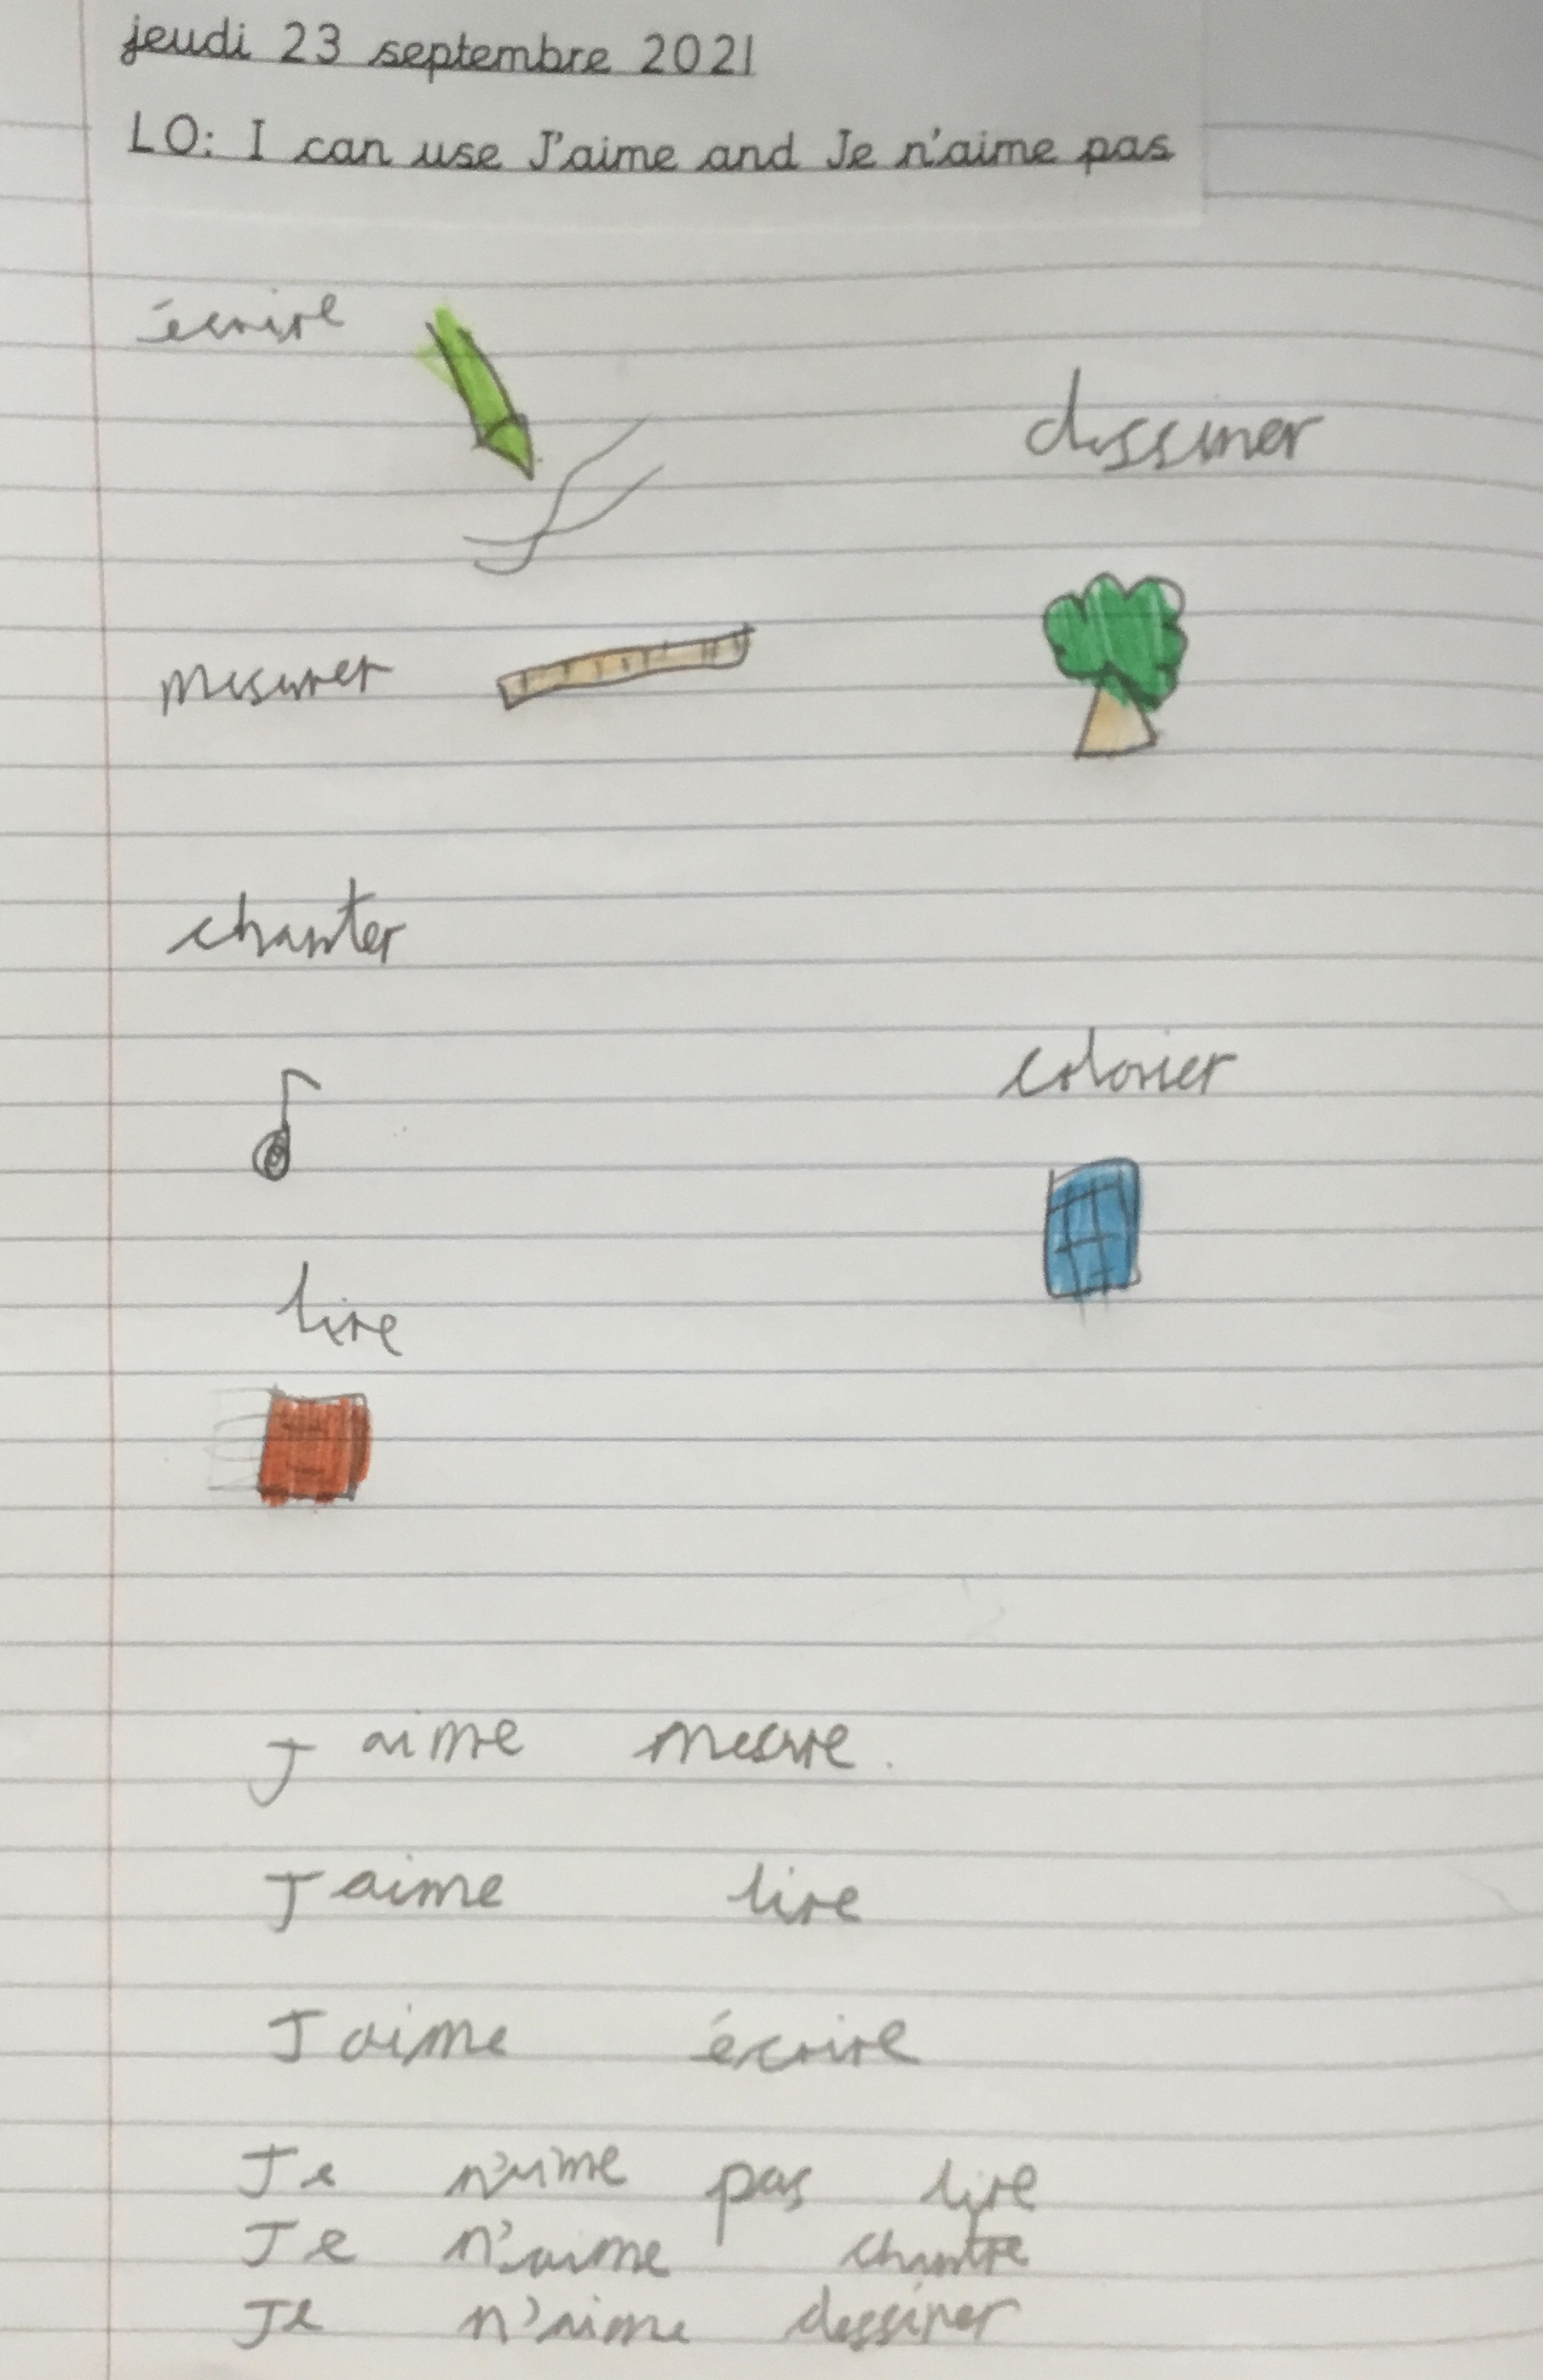 jeudi 23 septembre 2021
LO: I can use J'aime and Je n'aime pas
écrire
dessiner
mesurer
chanter
colorier
lire
J aime mesure.
J aime lire
J aime écrire
Je n'aime pas lire
Je n'aime chantre
Je n'aime dessiner